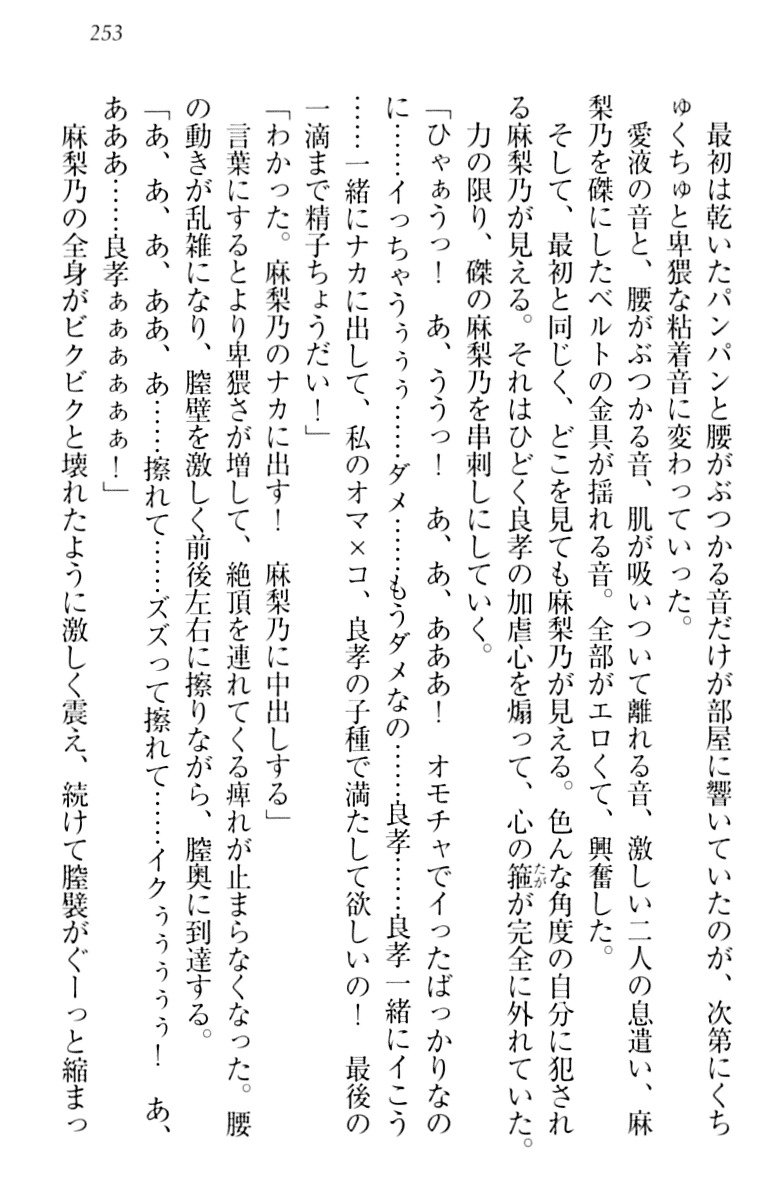 253
最初は乾いたパンパンと腰がぶつかる音だけが部屋に響いていたのが、次第にくち
ゅくちゅと卑猥な粘着音に変わっていった。
愛液の音と、腰がぶつかる音、肌が吸いついて離れる音、激しい二人の息遣い、麻
梨乃を磔にしたベルトの金具が揺れる音。全部がエロくて、興奮した。
そして、最初と同じく、どこを見ても麻梨乃が見える。色んな角度の自分に犯され
る麻梨乃が見える。それはひどく良孝の加虐心を煽って、心の箍たがが完全に外れていた。
力の限り、磔の麻梨乃を串刺しにしていく。
「ひゃぁうっ！　あ、ううっ！　あ、あ、あああ！　オモチャでイったばっかりなの
に……イっちゃうぅぅぅ……ダメ……もうダメなの……良孝……良孝一緒にイこう
……一緒にナカに出して、私のオマ×コ、良孝の子種で満たして欲しいの！　最後の
一滴まで精子ちょうだい！」
「わかった。麻梨乃のナカに出す！　麻梨乃に中出しする」
言葉にするとより卑猥さが増して、絶頂を連れてくる痺れが止まらなくなった。腰
の動きが乱雑になり、膣壁を激しく前後左右に擦りながら、膣奥に到達する。
「あ、あ、あ、ああ、あ……擦れて……ズズって擦れて……イクぅぅぅぅぅ！　あ、
あああ……良孝ぁぁぁぁぁぁ！」
麻梨乃の全身がビクビクと壊れたように激しく震え、続けて膣襞がぐーっと縮まっ